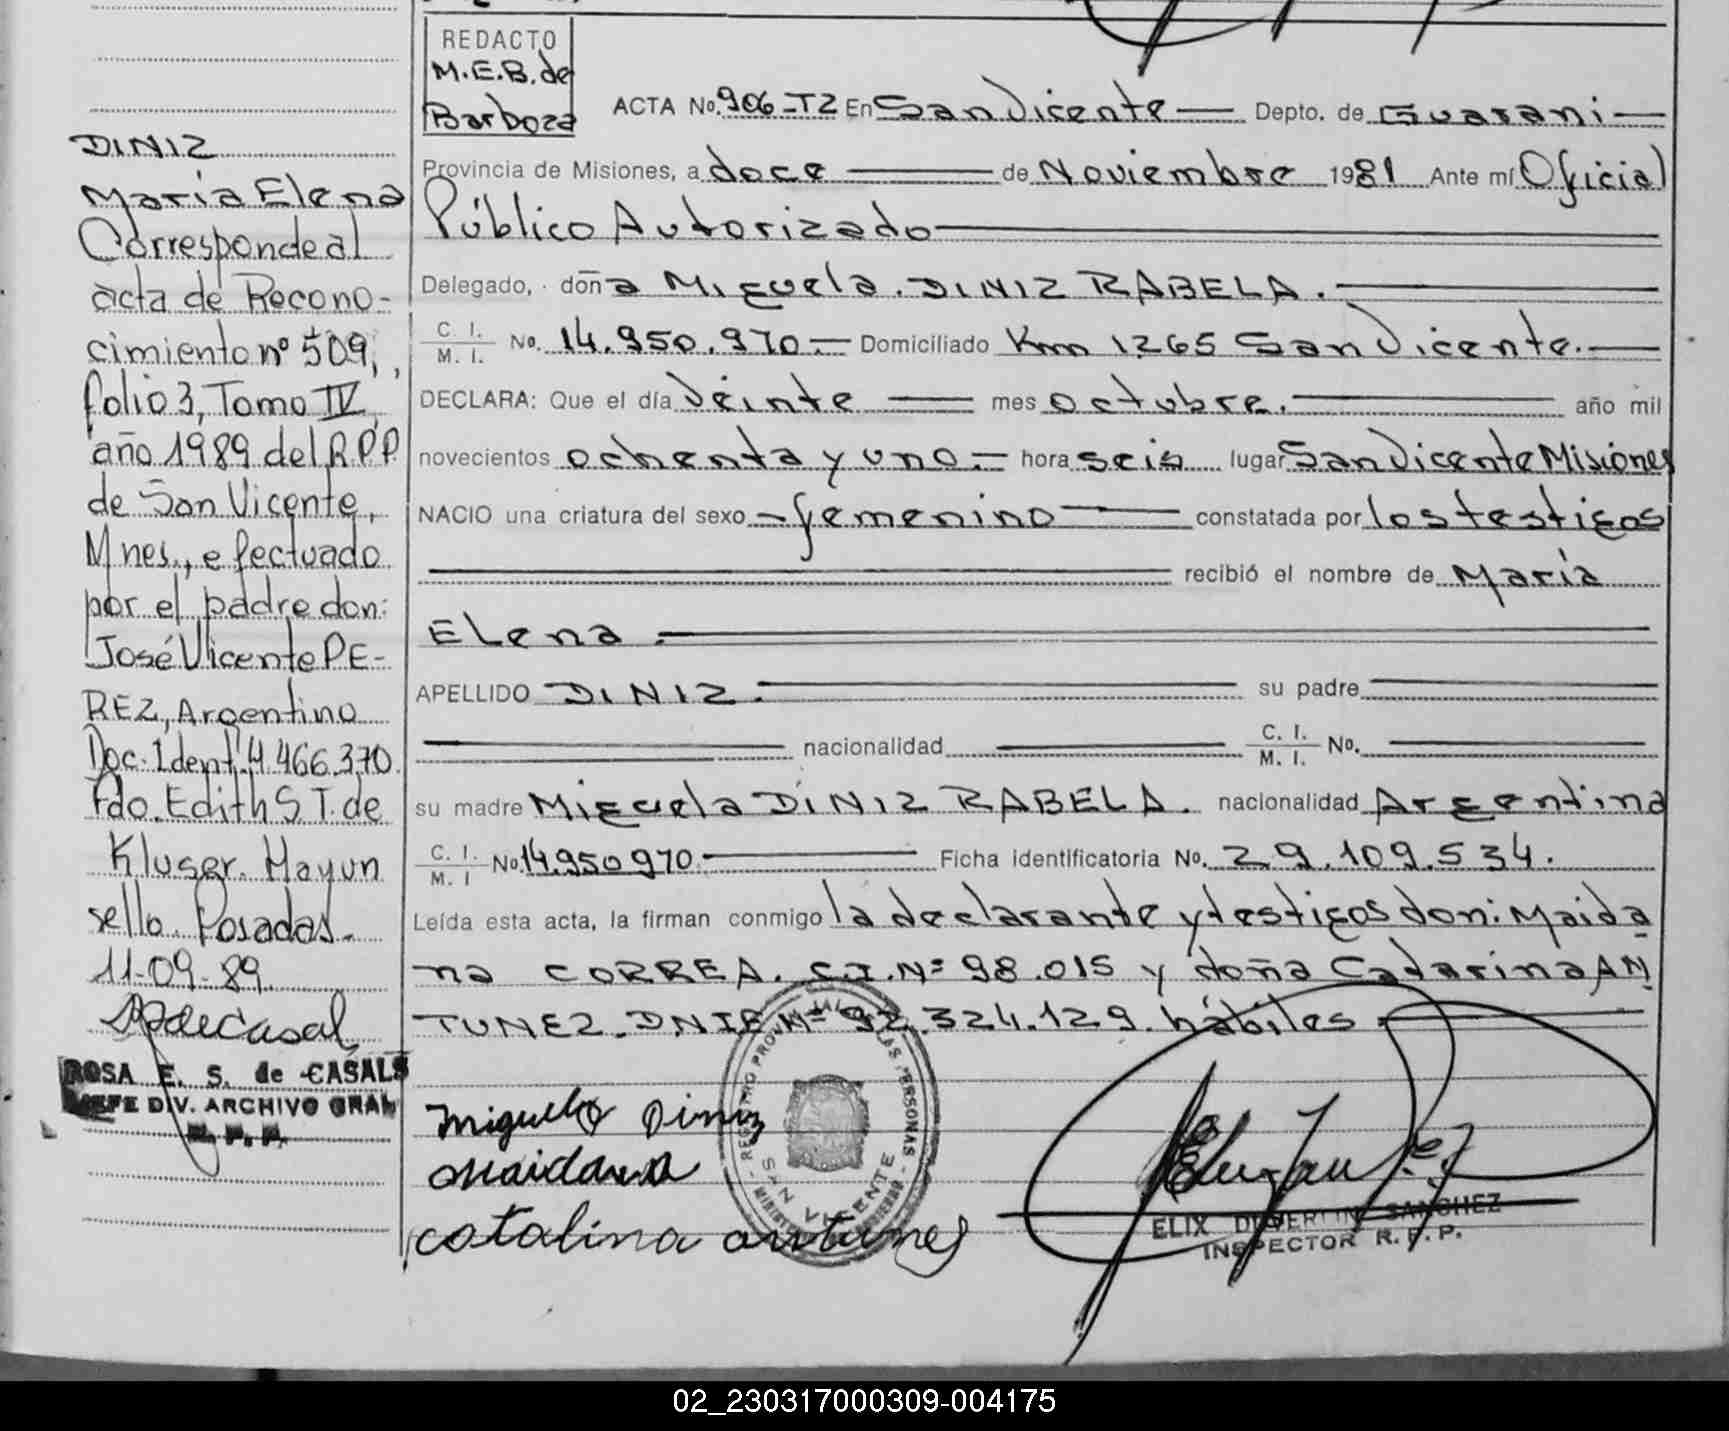 REDACTO
M.E.B. de
Barboza
ACTA No. 906-T2 En San Vicente Depto. de Guarani
Provincia de Misiones, a doce de Noviembre 1981 Ante mí Oficial
Público Autorizado
Delegado, doña Miguela DINIZ RABELA.
C. I.
M. I. No. 14.950.970.- Domiciliado Km 1265 San Vicente.
DECLARA: Que el día veinte mes octubre. año mil
novecientos ochenta y uno.- hora seis lugar San Vicente Misiones
NACIO una criatura del sexo femenino constatada por los testigos
recibió el nombre de María
Elena.
APELLIDO DINIZ. su padre
nacionalidad C. I.
M. I. No.
su madre Miguela DINIZ RABELA. nacionalidad Argentina
C. I.
M. I No. 14.950970. Ficha identificatoria No. 29.109.534.
Leída esta acta, la firman conmigo la declarante y testigos don: Maida
na CORREA. C.I.Nº 98.015 y doña Catarina AN
TUNEZ. DNIE Nº 92.324.129. hábiles
Miguela Diniz
Maidana
catalina antunes
SAN VICENTE
ELIX SANCHEZ
INSPECTOR R. P. P.
DINIZ
María Elena
Corresponde al
acta de Recono-
cimiento nº 509,
folio 3, Tomo IV,
año 1989 del R.P.P.
de San Vicente,
Mnes., efectuado
por el padre don:
José Vicente PE-
REZ, Argentino
Doc. Ident. 4.466.370
Fdo. Edith S T. de
Kluser. Hay un
sello. Posadas.
11-09-89.
ROSA E. S. de CASALS
JEFE DIV. ARCHIVO GRAL
R. P. P.
02_230317000309-004175